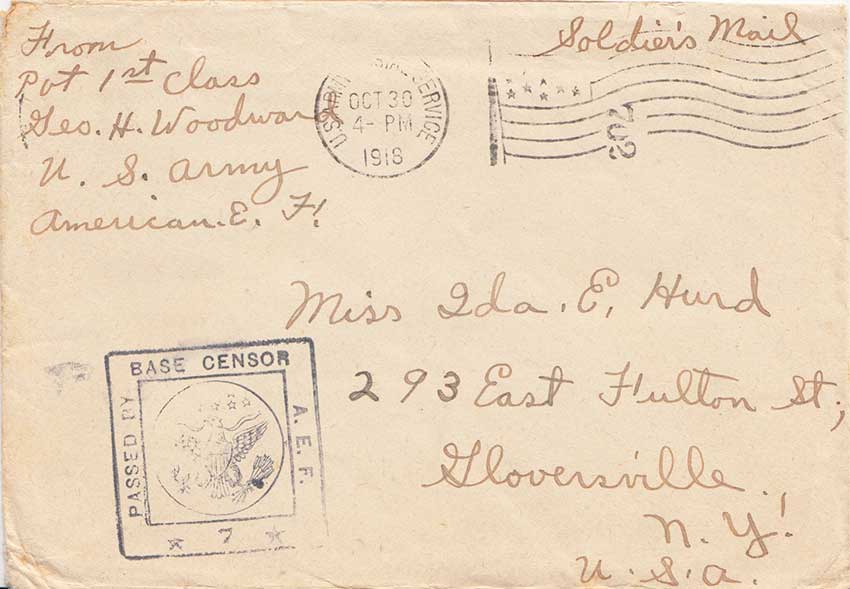 From
Pvt 1st Class
Geo. H. Woodward
U. S. Army
American. E. F.
Soldier's Mail
U.S. SERVICE
OCT 30
4- PM
1918
702
Miss Ida. E. Hurd
293 East Fulton St.,
Gloversville.,
N. Y.
U. S. A.
PASSED BY
BASE CENSOR
A. E. F.
7